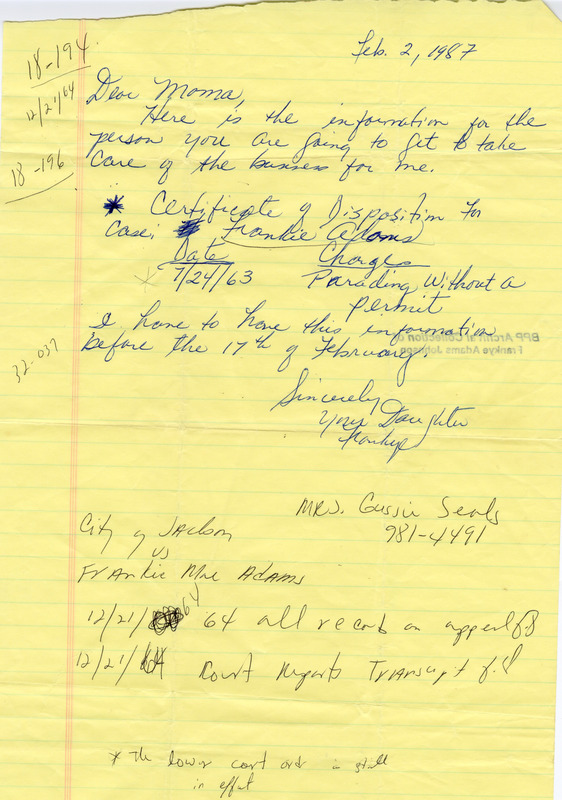 18-194
12/21/64
18-196
Feb. 2, 1987
Dear Moma,
Here is the information for the
person you are going to get to take
care of the business for me.
* Certificate of Disposition For
Case: Frankie Adams
Date Charges
* 7/24/63 Parading Without a
permit
I have to have this information
before the 17th of February.
32-037
BPP Archival Collection of
Frankye Adams Johnson
Sincerely
Your Daughter
Frankye
Mrs. Gussie Seals
981-4491
City of Jackson
vs
Frankie Mae Adams
12/21/64 64 all record on appeal
12/21/64 Court Reports Transcript
* The lower cort order is still
in effect